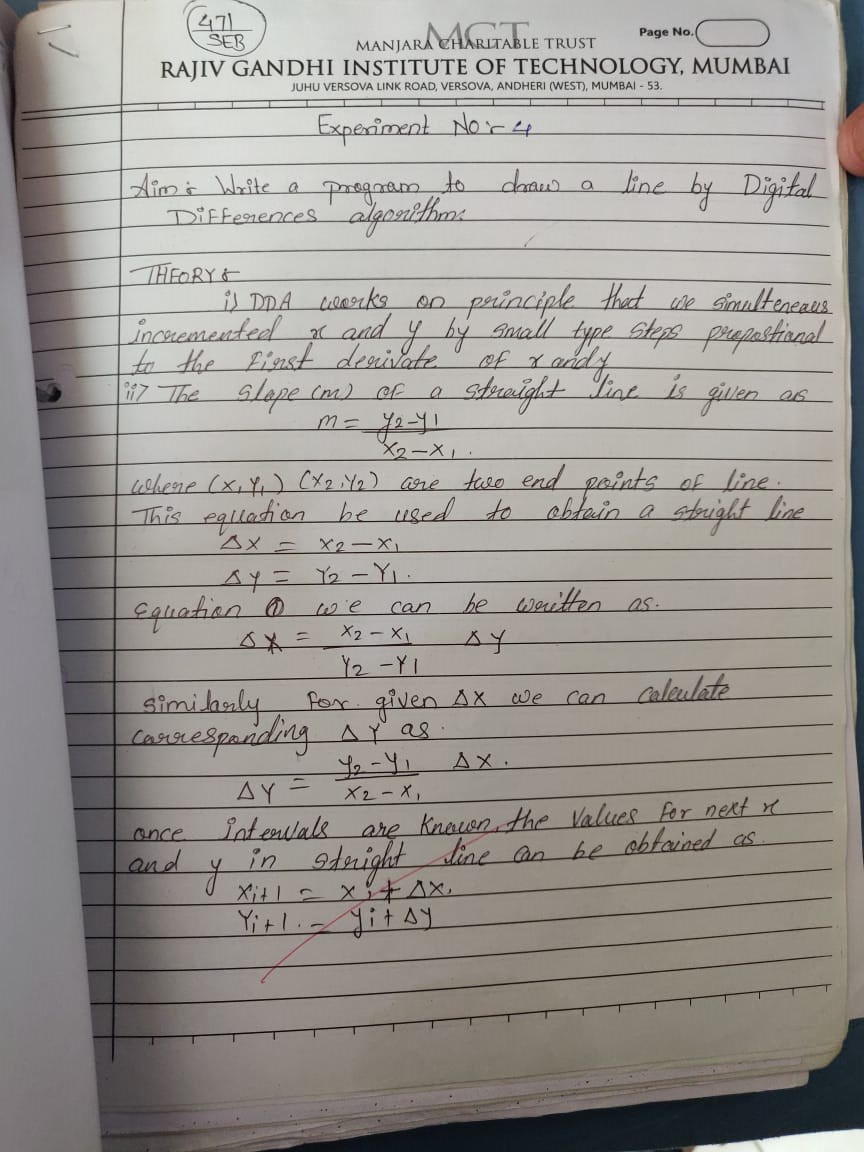 471
SEB
MCT
MANJARA CHARITABLE TRUST
Page No.
RAJIV GANDHI INSTITUTE OF TECHNOLOGY, MUMBAI
JUHU VERSOVA LINK ROAD, VERSOVA, ANDHERI (WEST), MUMBAI - 53.
Experiment No:- 4
Aim: Write a program to draw a line by Digital
Differences algorithm.
THEORY:
i) DDA works on principle that we simulteneaus
incremented x and y by small type steps prepostional
to the First derivate of x and y
ii) The Slope (m) of a straight line is given as
m = y2-y1
x2-x1.
where (x1 Y1) (x2, Y2) are two end points of line.
This equation be used to obtain a stright line
Δx = x2-x1
Δy = Y2-Y1.
Equation ① we can be written as.
Δx = x2-x1 Δy
Y2-Y1
similarly For given Δx we can calculate
carresponding ΔY as.
ΔY = y2-y1 Δx.
x2-x1
once intervals are known, the values for next x
and y in stright line can be obtained as
xi+1 = xi + Δx.
Yi+1. = yi + Δy